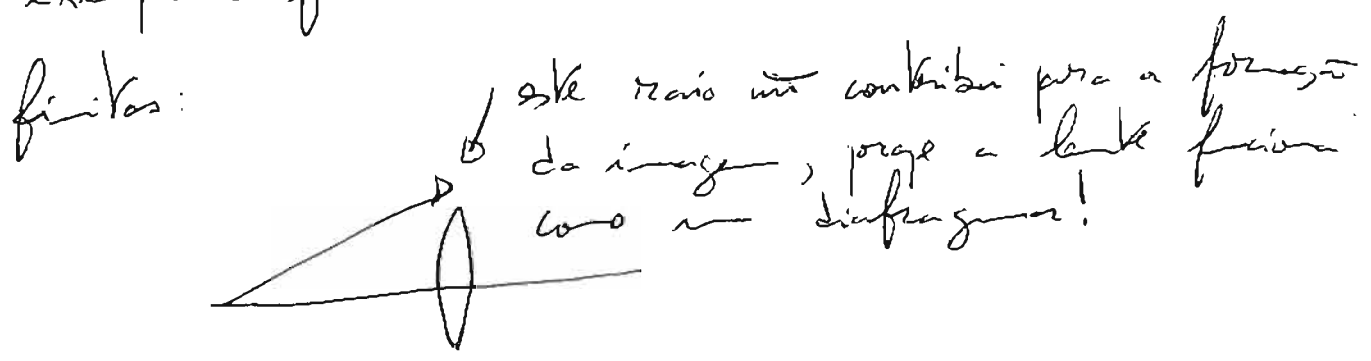 finitas:
este raio não contribui para a formação
da imagem, porque a lente funciona
como um diafragma!